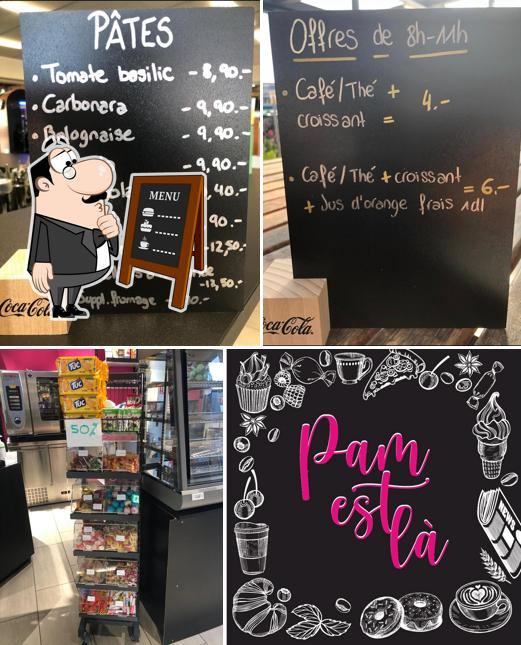 PÂTES
• Tomate basilic - 8,90.-
• Carbonara - 9,90.-
• Bolognaise - 9,90.-
- 9,90.-
40.-
MENU
90.-
-12,50.-
-13,50.-
suppl. fromage
Coca-Cola
Offres de 8h-11h
• Café/Thé +
croissant = 4.-
• Café/Thé + croissant
+ Jus d'orange frais 1dl = 6.-
Coca-Cola
TUC
TUC
TUC
50%
Pam
est
là